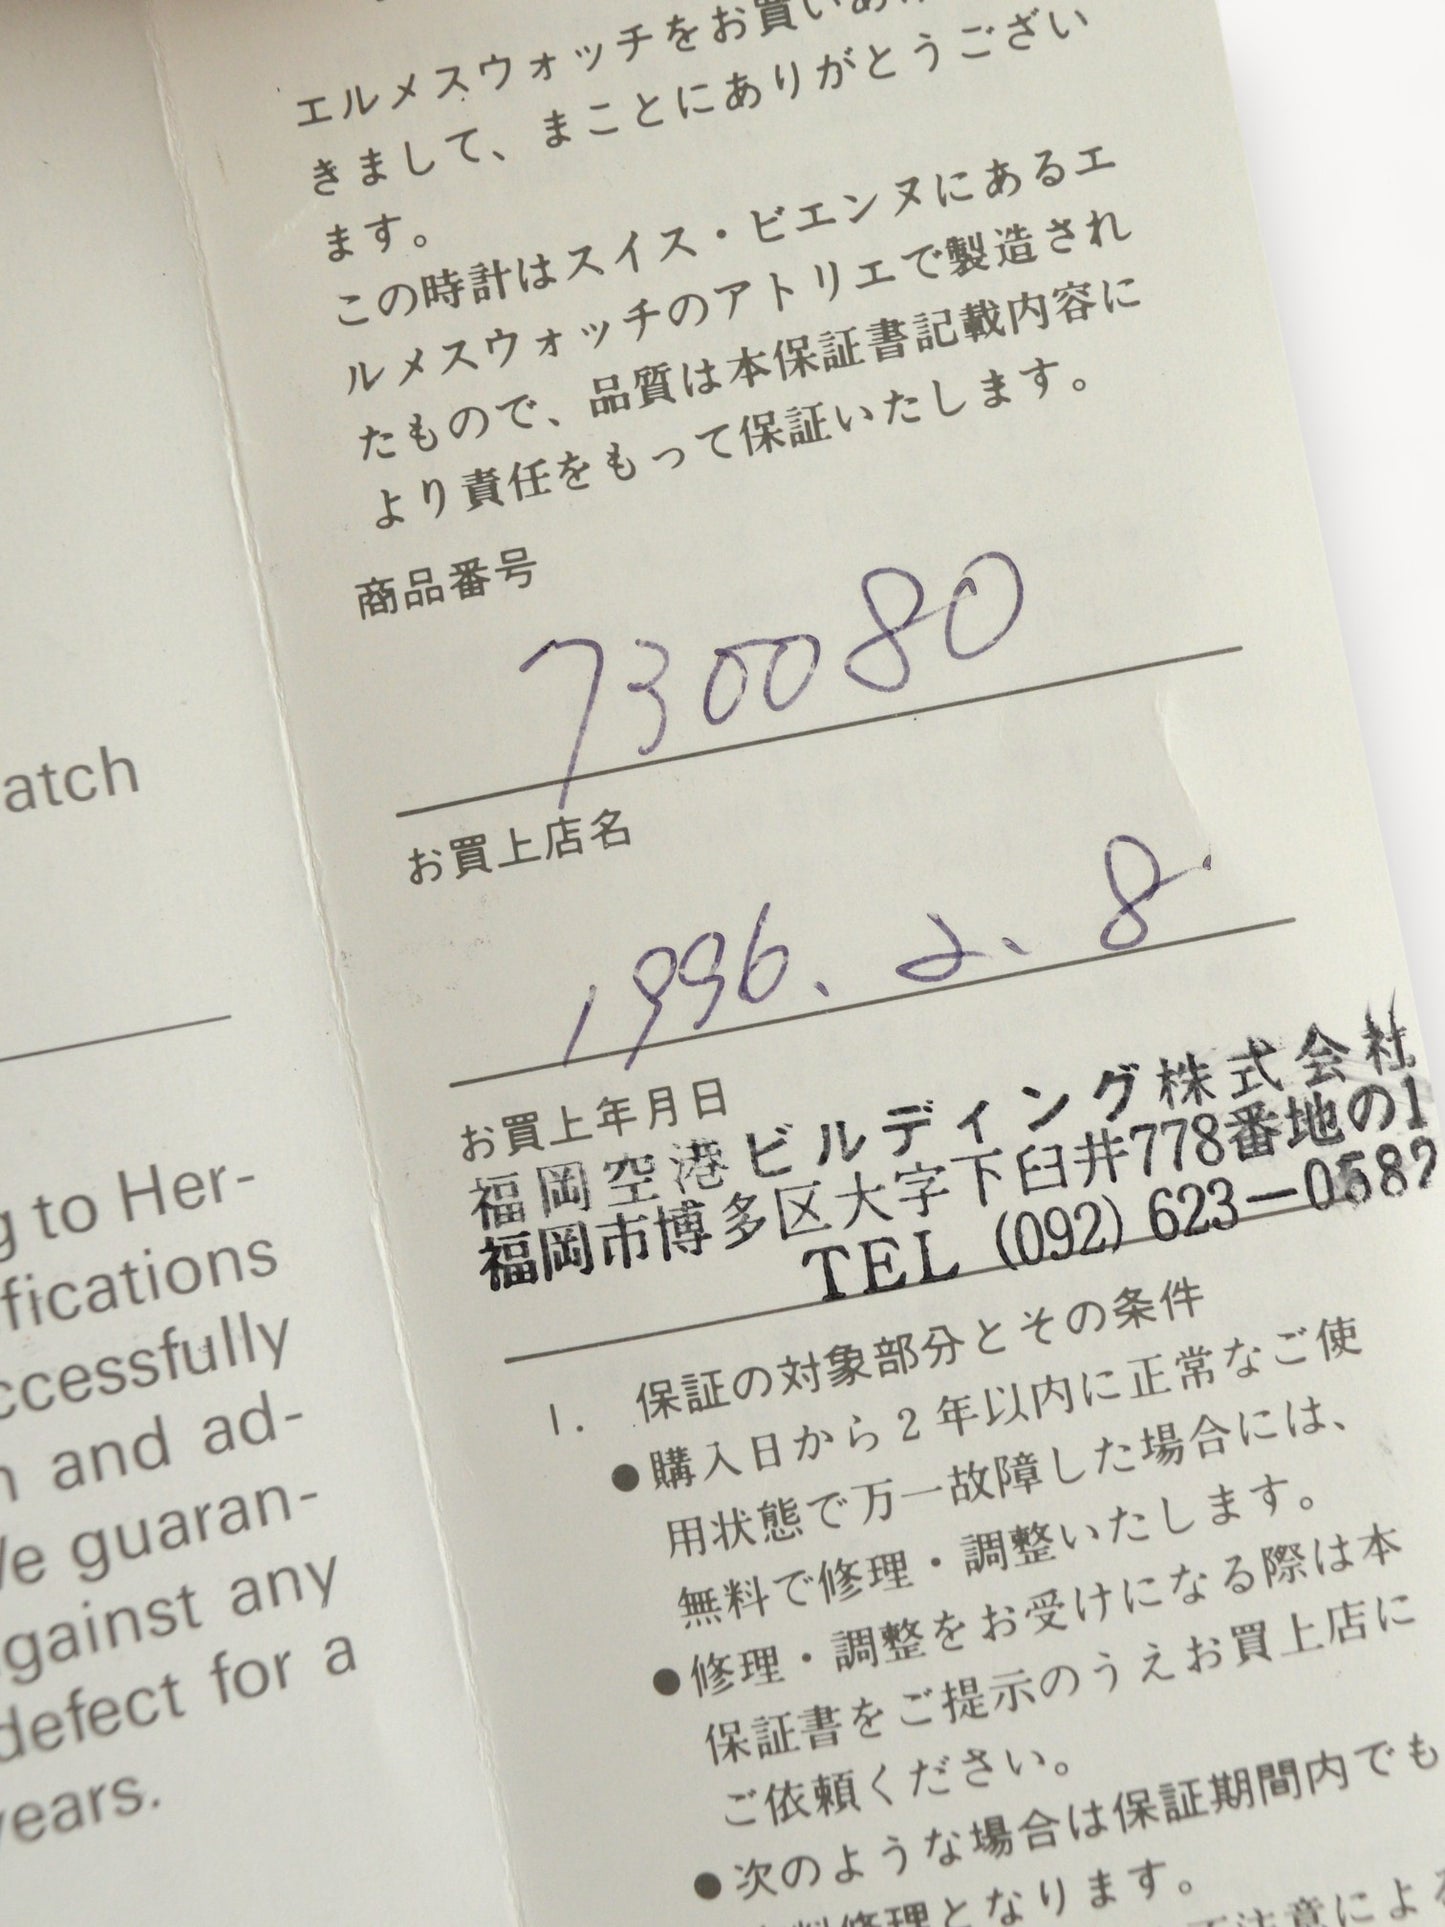 エルメスウォッチをお買いあ
きまして、まことにありがとうござい
ます。
この時計はスイス・ビエンヌにあるエ
ルメスウォッチのアトリエで製造され
たもので、品質は本保証書記載内容に
より責任をもって保証いたします。
商品番号
730080
お買上店名
1996. 2. 8.
お買上年月日
福岡空港ビルディング株式会社
福岡市博多区大字下臼井778番地の1
TEL (092) 623-0582
1. 保証の対象部分とその条件
●購入日から2年以内に正常なご使
用状態で万一故障した場合には、
無料で修理・調整いたします。
●修理・調整をお受けになる際は本
保証書をご提示のうえお買上店に
ご依頼ください。
●次のような場合は保証期間内でも
料修理となります。
注意による
atch
g to Her-
fications
ccessfully
n and ad-
We guaran-
against any
defect for a
years.